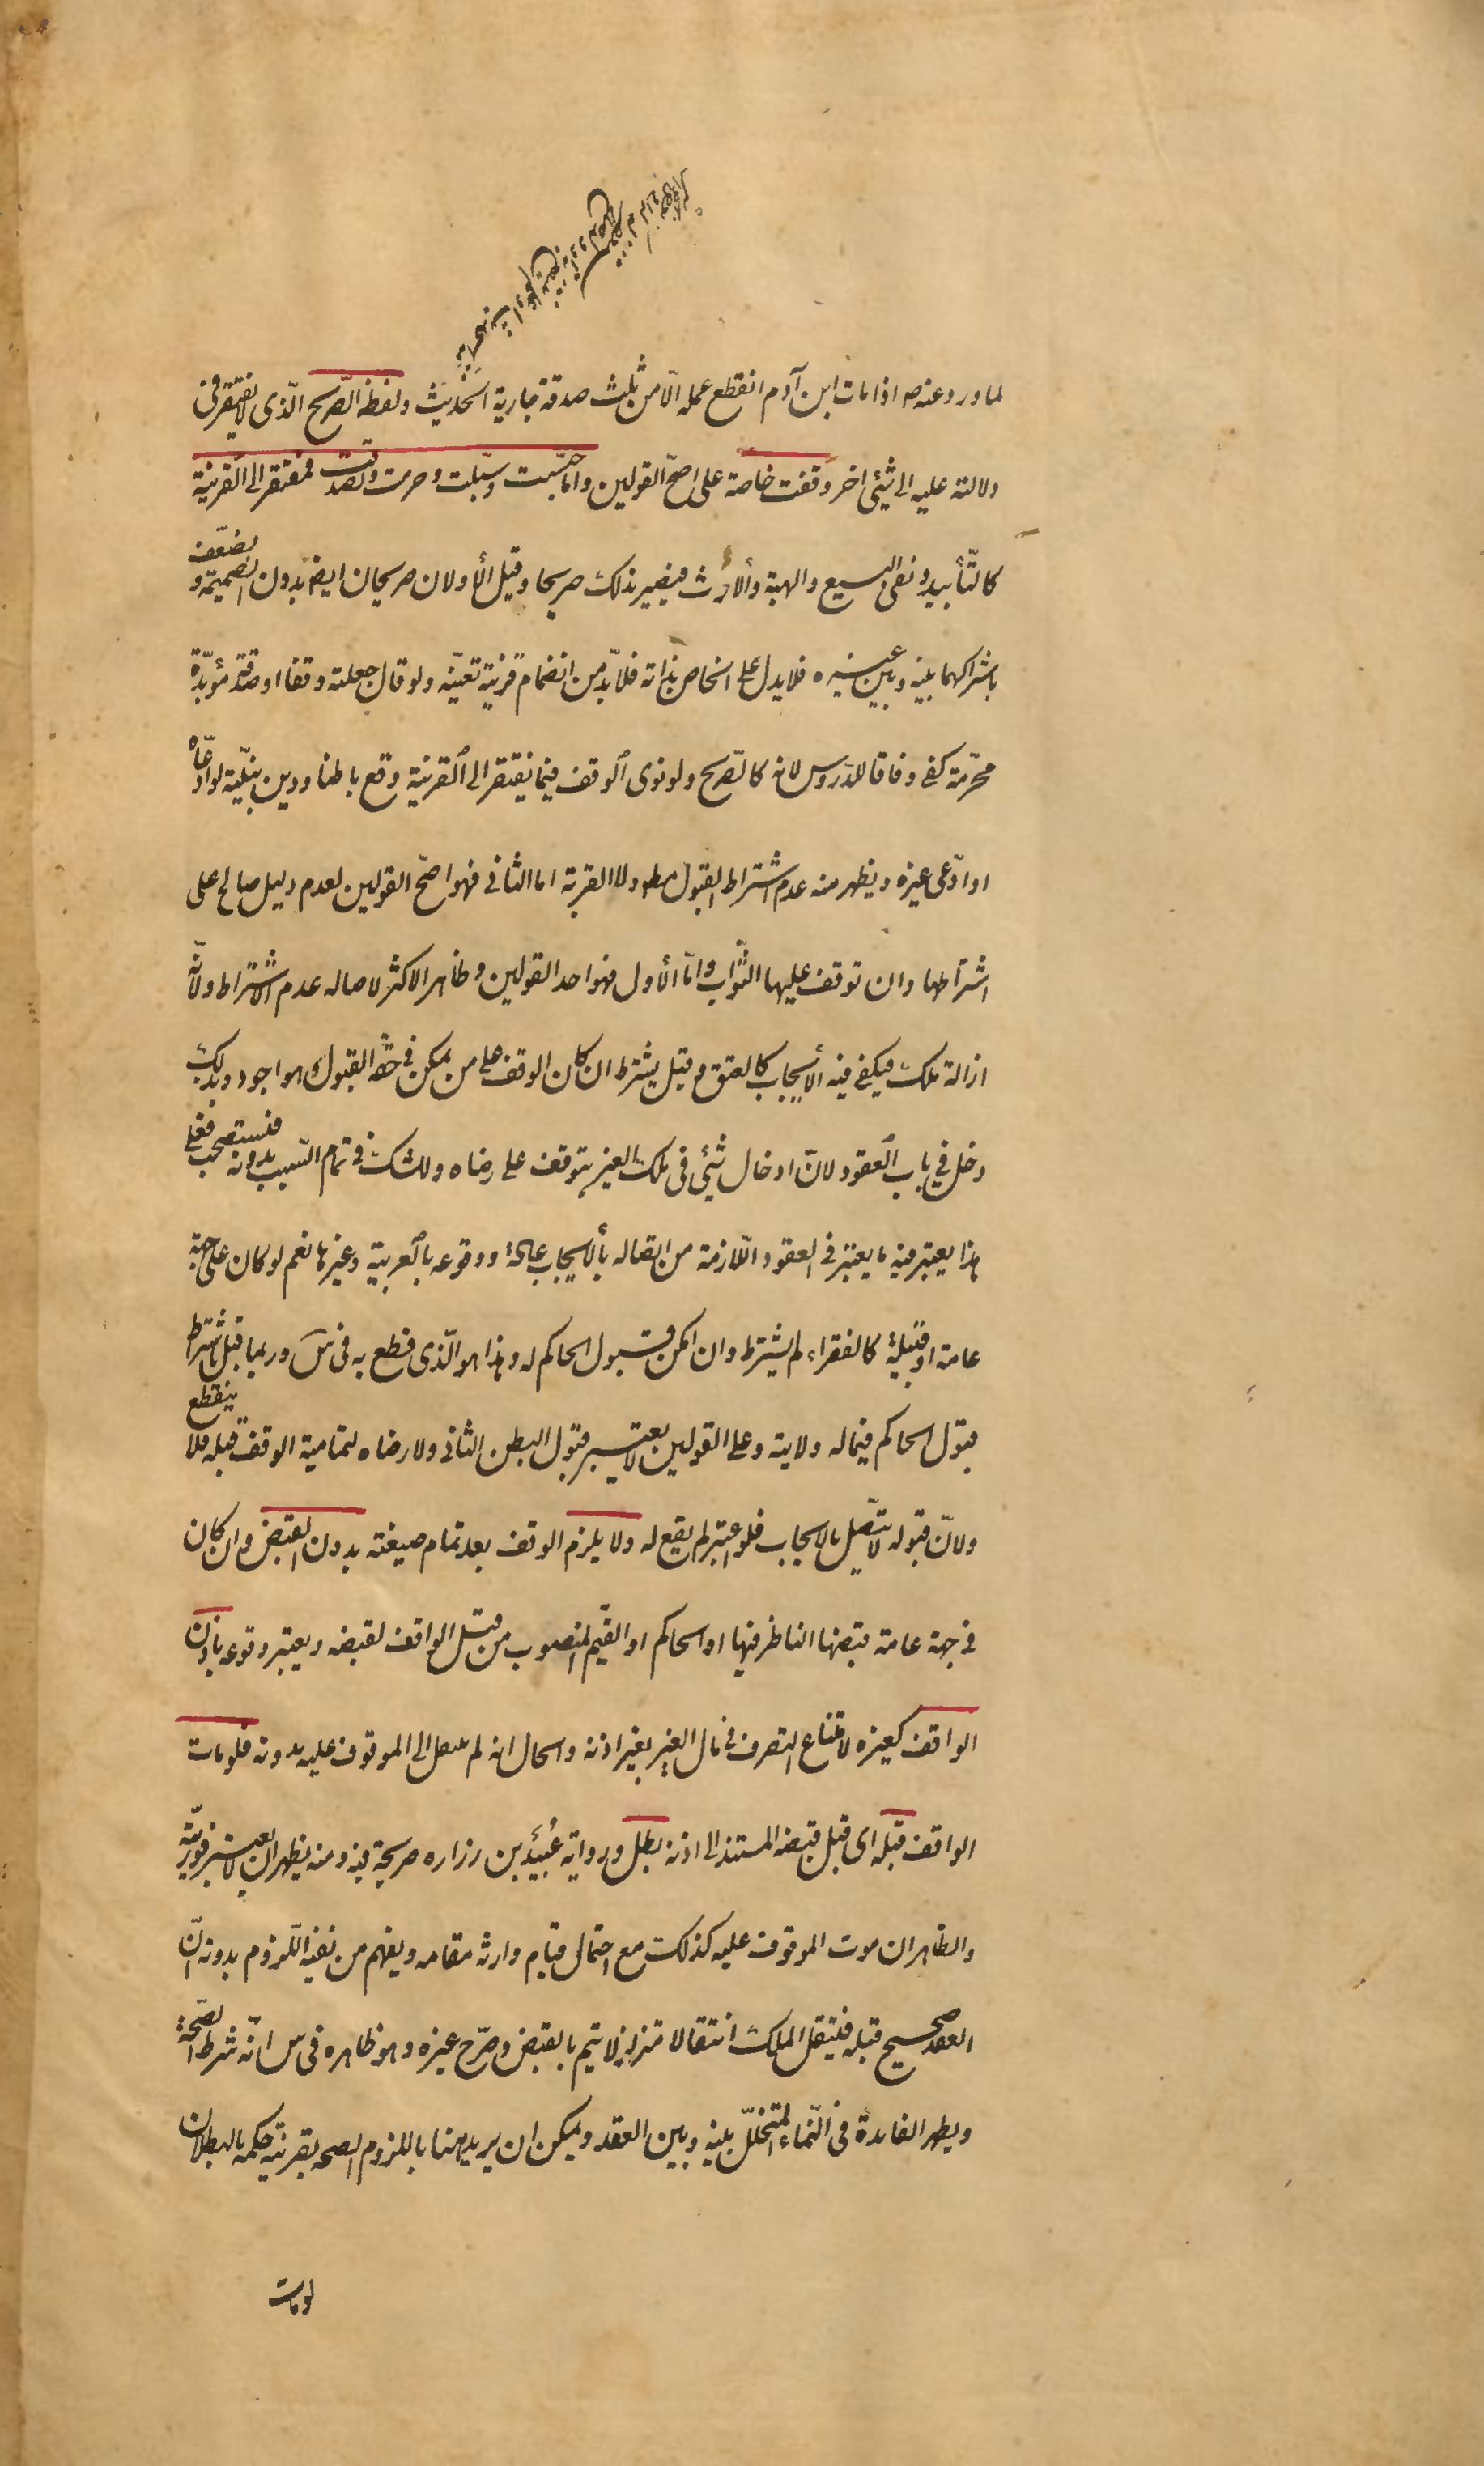 لما ورد عنه ص اذا مات ابن آدم انقطع عمله الّا من ثلث صدقة جارية الحديث ولفظه الصّريح الّذى لا يفتقر فى
دلالته عليه الى شئ اخر وقفت خاصة على اصحّ القولين واما حبّست وسبّلت وحرمت وتصدقت فمفتقر الى القرينة
كالتّأبيد ونفى البيع والهبة والأرث فيصير بذلك صريحا وقيل الأولان صريحان ايضا بدون الضميمة ويضعف
باشتراكهما بينه وبين غيره فلا يدل على الخاص بذاته فلا بدّ من انضمام قرينة تعيّنه ولو قال جعلته وقفا او صدقة مؤبّدة
محرّمة كفى وفاقا للدّروس لانه كالصّريح ولو نوى الوقف فيما يفتقر الى القرينة وقع باطنا ودين بنيّته لو ادّعاه
او ادّعى غيره ويظهر منه عدم اشتراط القبول مطلقا ولا القربة اما الثانى فهو اصحّ القولين لعدم دليل صالح على
اشتراطها وان توقف عليها الثّواب وامّا الأول فهو احد القولين وظاهر الاكثر لاصاله عدم الاشتراط ولانّه
ازالة ملك فيكفى فيه الأيجاب كالعتق وقيل يشترط ان كان الوقف على من يمكن فى حقّه القبول وهو اجود وبذلك
دخل فى باب العقود لانّ ادخال شئ فى ملك الغير يتوقف على رضاه وللشك فى تمام السّبب بدونه فيستصحب فعلى
هذا يعتبر فيه ما يعتبر فى العقود اللّازمة من اتصاله بالأيجاب عادة ووقوعه بالعربية وغيرها نعم لو كان على جهة
عامة او قبيلة كالفقراء لم يشترط وان امكن قبول الحاكم له وهذا هو الّذى قطع به فى س وربما قيل باشتراط
قبول الحاكم فيما له ولاية وعلى القولين لا يعتبر قبول البطن الثانى ولا رضاه لتمامية الوقف قبله فلا ينقطع
ولانّ قبوله لا يتّصل بالايجاب فلو اعتبر لم يقع له ولا يلزم الوقف بعد تمام صيغته بدون القبض وان كان
فى جهة عامة قبضها الناظر فيها او الحاكم او القيّم المنصوب من قبل الواقف لقبضه ويعتبر وقوعه باذن
الواقف كغيره لامتناع التصرف فى مال الغير بغير اذنه والحال انه لم ينتقل الى الموقوف عليه بدونه فلو مات
الواقف قبله اى قبل قبضه المستند الى اذنه بطل ورواية عبيد بن زراره صريحة فيه ومنه يظهر انه لا يعتبر فوريّته
والظاهر ان موت الموقوف عليه كذلك مع احتمال قيام وارثه مقامه ويفهم من نفيه اللّزوم بدونه انّ
العقد صحيح قبله فينتقل الملك انتقالا متزلزلا يتم بالقبض وصرّح غيره وهو ظاهره فى س انّه شرط الصّحة
ويظهر الفايدة فى النّماء المتخلّل بينه وبين العقد ويمكن ان يريد هنا باللزوم الصحه بقرينة حكمه بالبطلان
لو مات